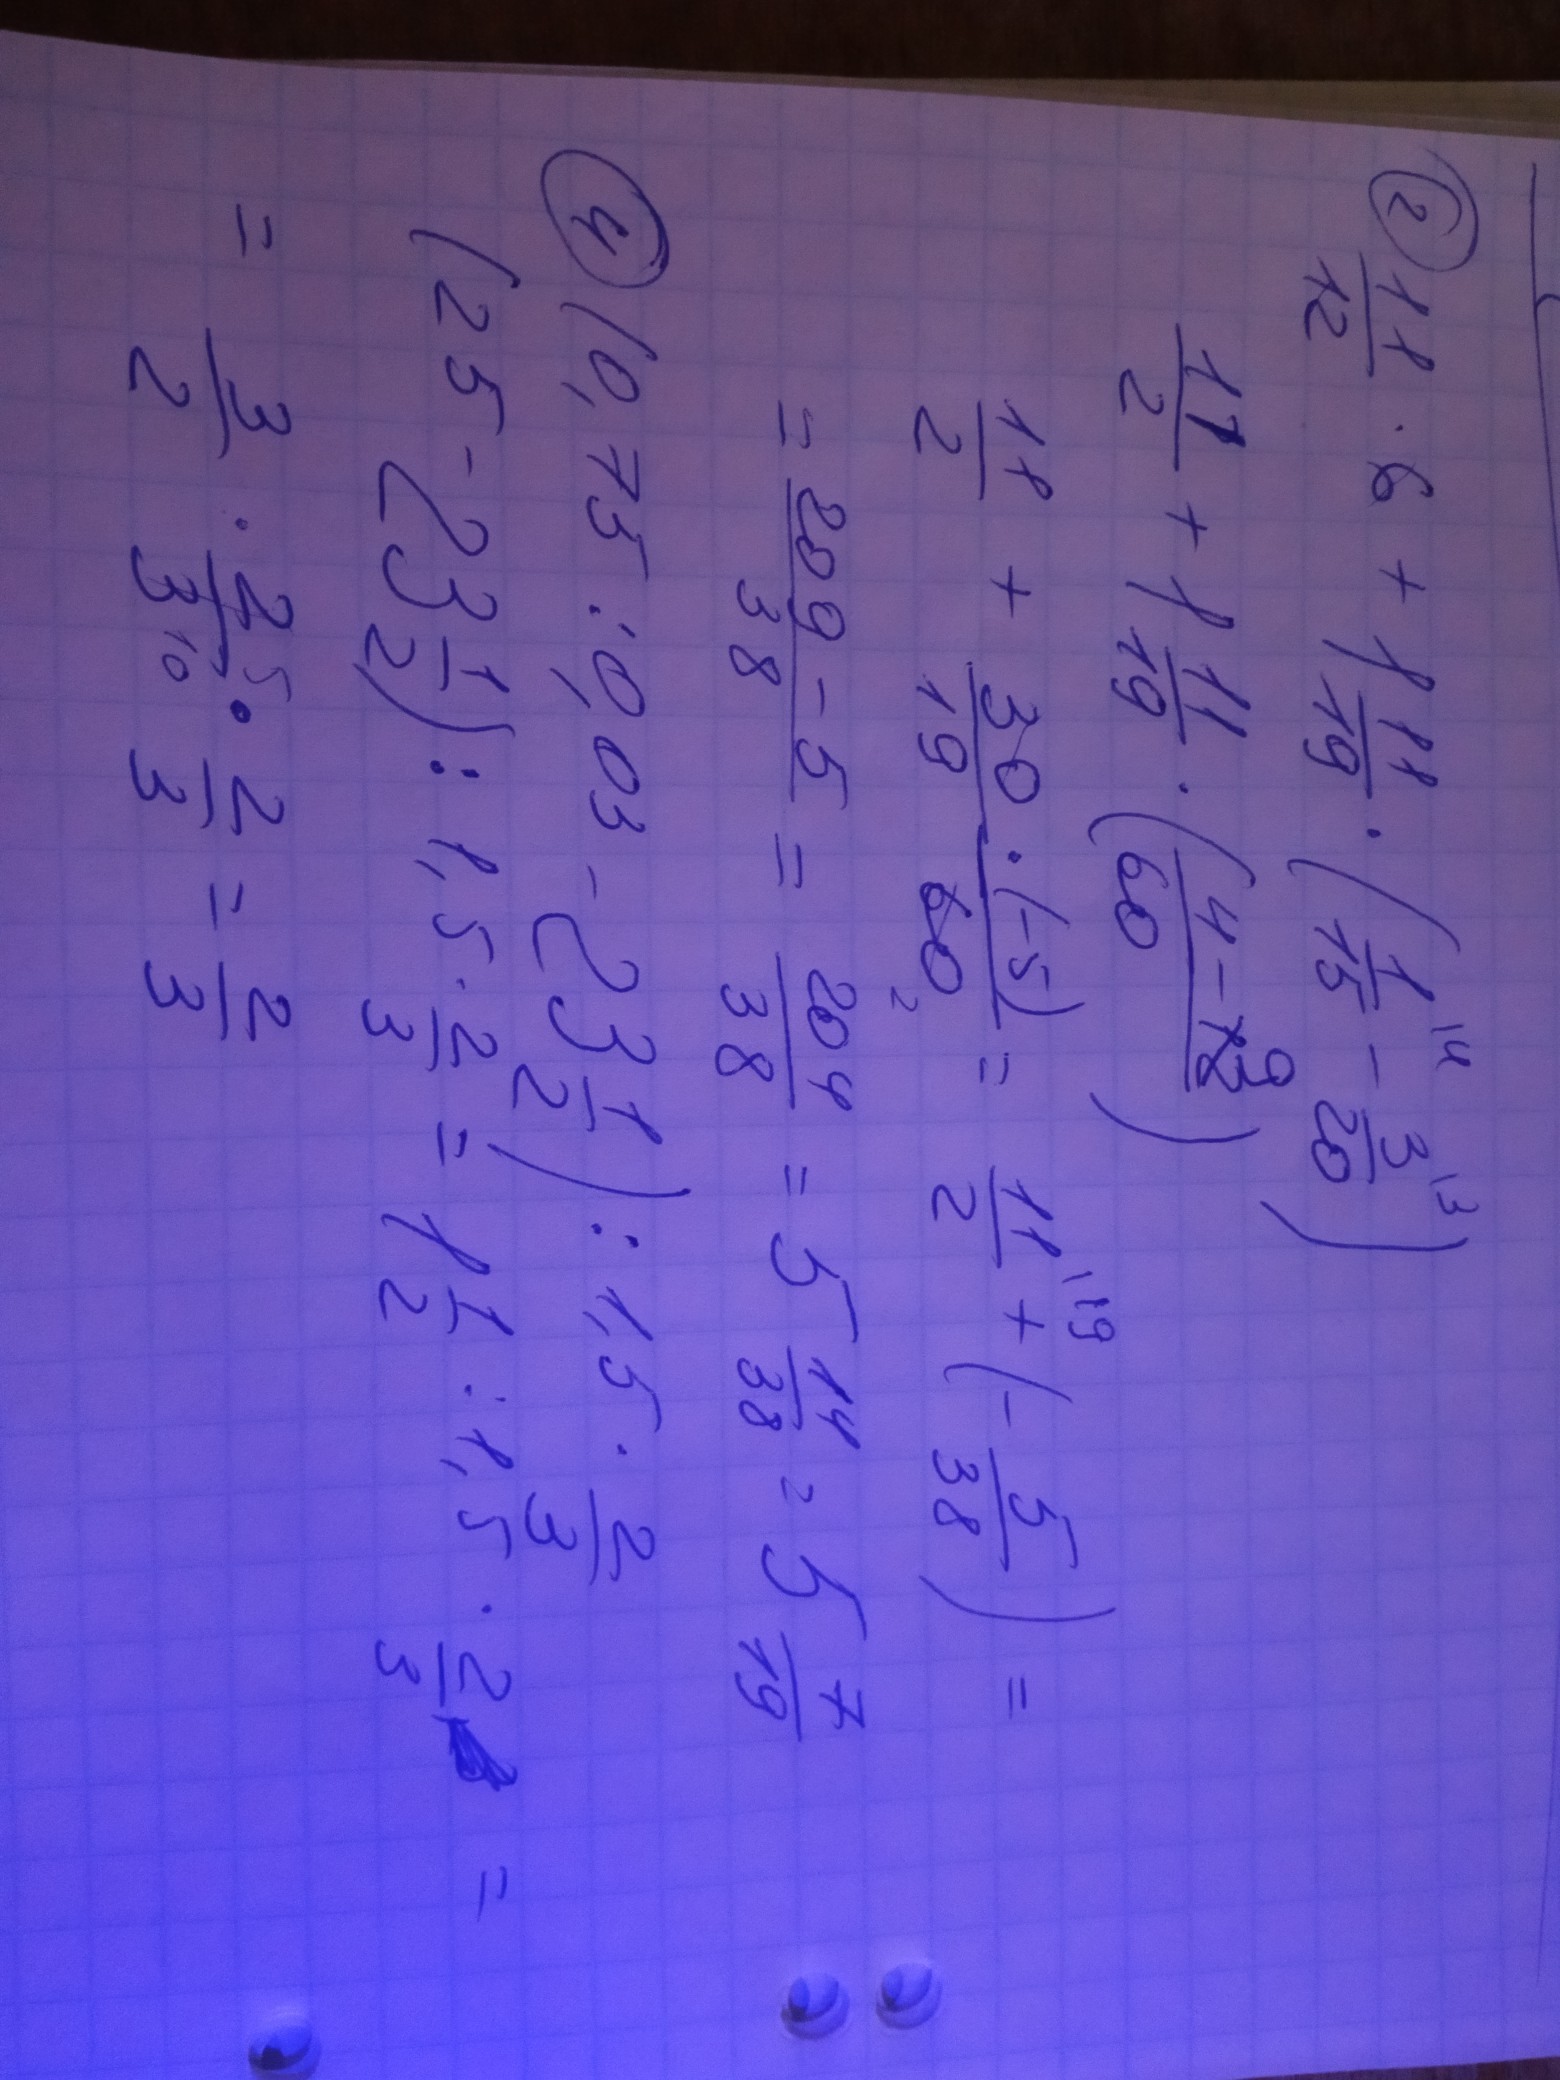 ② 11/12 · 6 + 1 11/19 · (1/15 \4 - 3/20 \3)
11/2 + 1 11/19 · ((4-9)/60)
11/2 + 30/19 · (-5)/60 2 = 11/2 \19 + (-5/38) =
= (209-5)/38 = 204/38 = 5 14/38 = 5 7/19
④ (0,75 : 0,03 - 23 1/2) : 1,5 · 2/3
(25 - 23 1/2) : 1,5 · 2/3 = 1 1/2 : 1,5 · 2/3 =
= 3/2 · 2/3 · 2/3 = 2/3